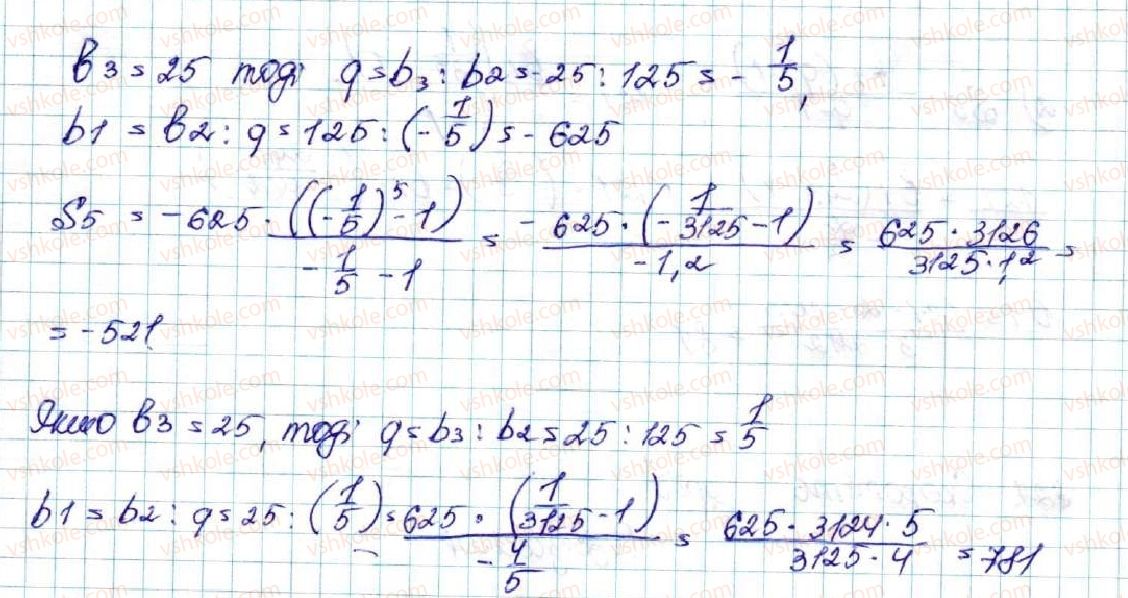 b3 = 25 тоді q = b3 : b2 = -25 : 125 = - 1/5,
b1 = b2 : q = 125 : (- 1/5) = - 625
S5 = -625 · ((- 1/5)^5 - 1) / (- 1/5 - 1) = - 625 · (- 1/3125 - 1) / (-1,2) = 625 · 3126 / (3125 · 1,2) =
= - 521.
Якщо b3 = 25, тоді q = b3 : b2 = 25 : 125 = 1/5
b1 = b2 : q = 25 : (1/5) = 625 · (1/3125 - 1) / (- 4/5) = 625 · 3124 · 5 / (3125 · 4) = 781